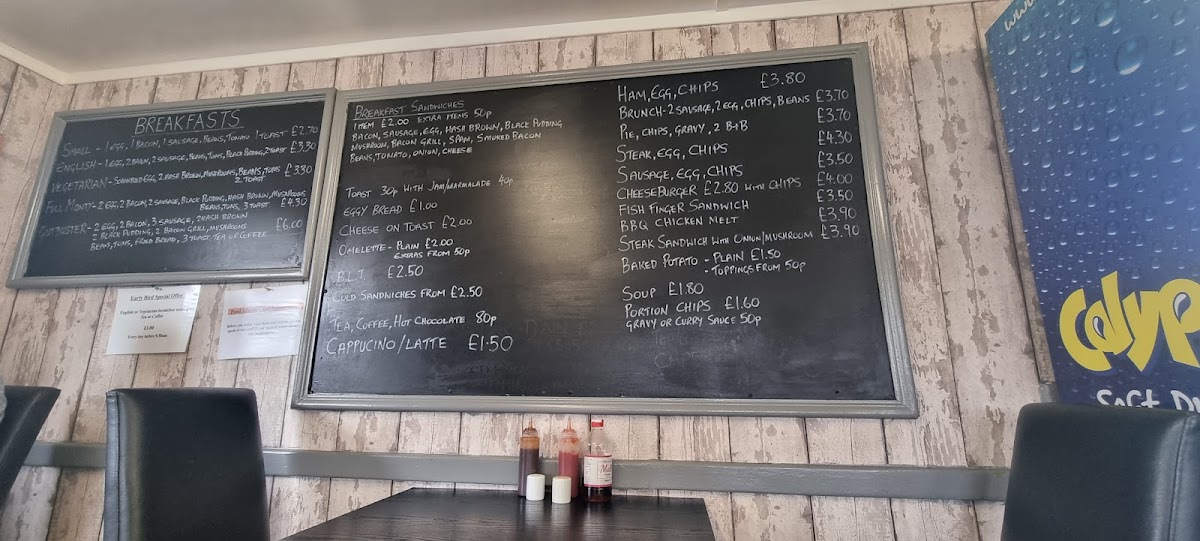 BREAKFASTS
SMALL - 1 EGG, 1 BACON, 1 SAUSAGE, BEANS, TOMATO 1 TOAST £2.70
ENGLISH - 1 EGG, 2 BACON, 2 SAUSAGE, BEANS, TOMS, BLACK PUDDING, 2 TOAST £3.30
VEGETARIAN - SCRAMBLED EGG, 2 HASH BROWN, MUSHROOMS, BEANS, TOMS £3.30
2 TOAST
FULL MONTY - 2 EGG, 2 BACON, 2 SAUSAGE, BLACK PUDDING, HASH BROWN, MUSHROOMS
BEANS, TOMS, 3 TOAST £4.30
GUTBUSTER - 2 EGG, 2 BACON, 3 SAUSAGE, 2 HASH BROWN £6.00
2 BLACK PUDDING, 2 BACON GRILL, MUSHROOMS
BEANS, TOMS, FRIED BREAD, 3 TOAST TEA OR COFFEE
Early Bird Special Offer
English or Vegetarian breakfast with
Tea or Coffee
£3.00
Every day before 9.30am
BREAKFAST SANDWICHES
1 ITEM £2.00 EXTRA ITEMS 50p
BACON, SAUSAGE, EGG, HASH BROWN, BLACK PUDDING
MUSHROOM, BACON GRILL, SPAM, SMOKED BACON
BEANS, TOMATO, ONION, CHEESE
TOAST 30p WITH JAM/MARMALADE 40p
EGGY BREAD £1.00
CHEESE ON TOAST £2.00
OMELETTE - PLAIN £2.00
EXTRAS FROM 50p
B.L.T. £2.50
COLD SANDWICHES FROM £2.50
TEA, COFFEE, HOT CHOCOLATE 80p
CAPPUCINO/LATTE £1.50
HAM, EGG, CHIPS £3.80
BRUNCH - 2 SAUSAGE, 2 EGG, CHIPS, BEANS £3.70
PIE, CHIPS, GRAVY, 2 B+B £3.70
STEAK, EGG, CHIPS £4.30
SAUSAGE, EGG, CHIPS £3.50
CHEESEBURGER £2.80 WITH CHIPS £4.00
FISH FINGER SANDWICH £3.50
BBQ CHICKEN MELT £3.90
STEAK SANDWICH WITH ONION/MUSHROOM £3.90
BAKED POTATO - PLAIN £1.50
- TOPPINGS FROM 50p
SOUP £1.80
PORTION CHIPS £1.60
GRAVY OR CURRY SAUCE 50p
www.
Calyp
SOFT DR